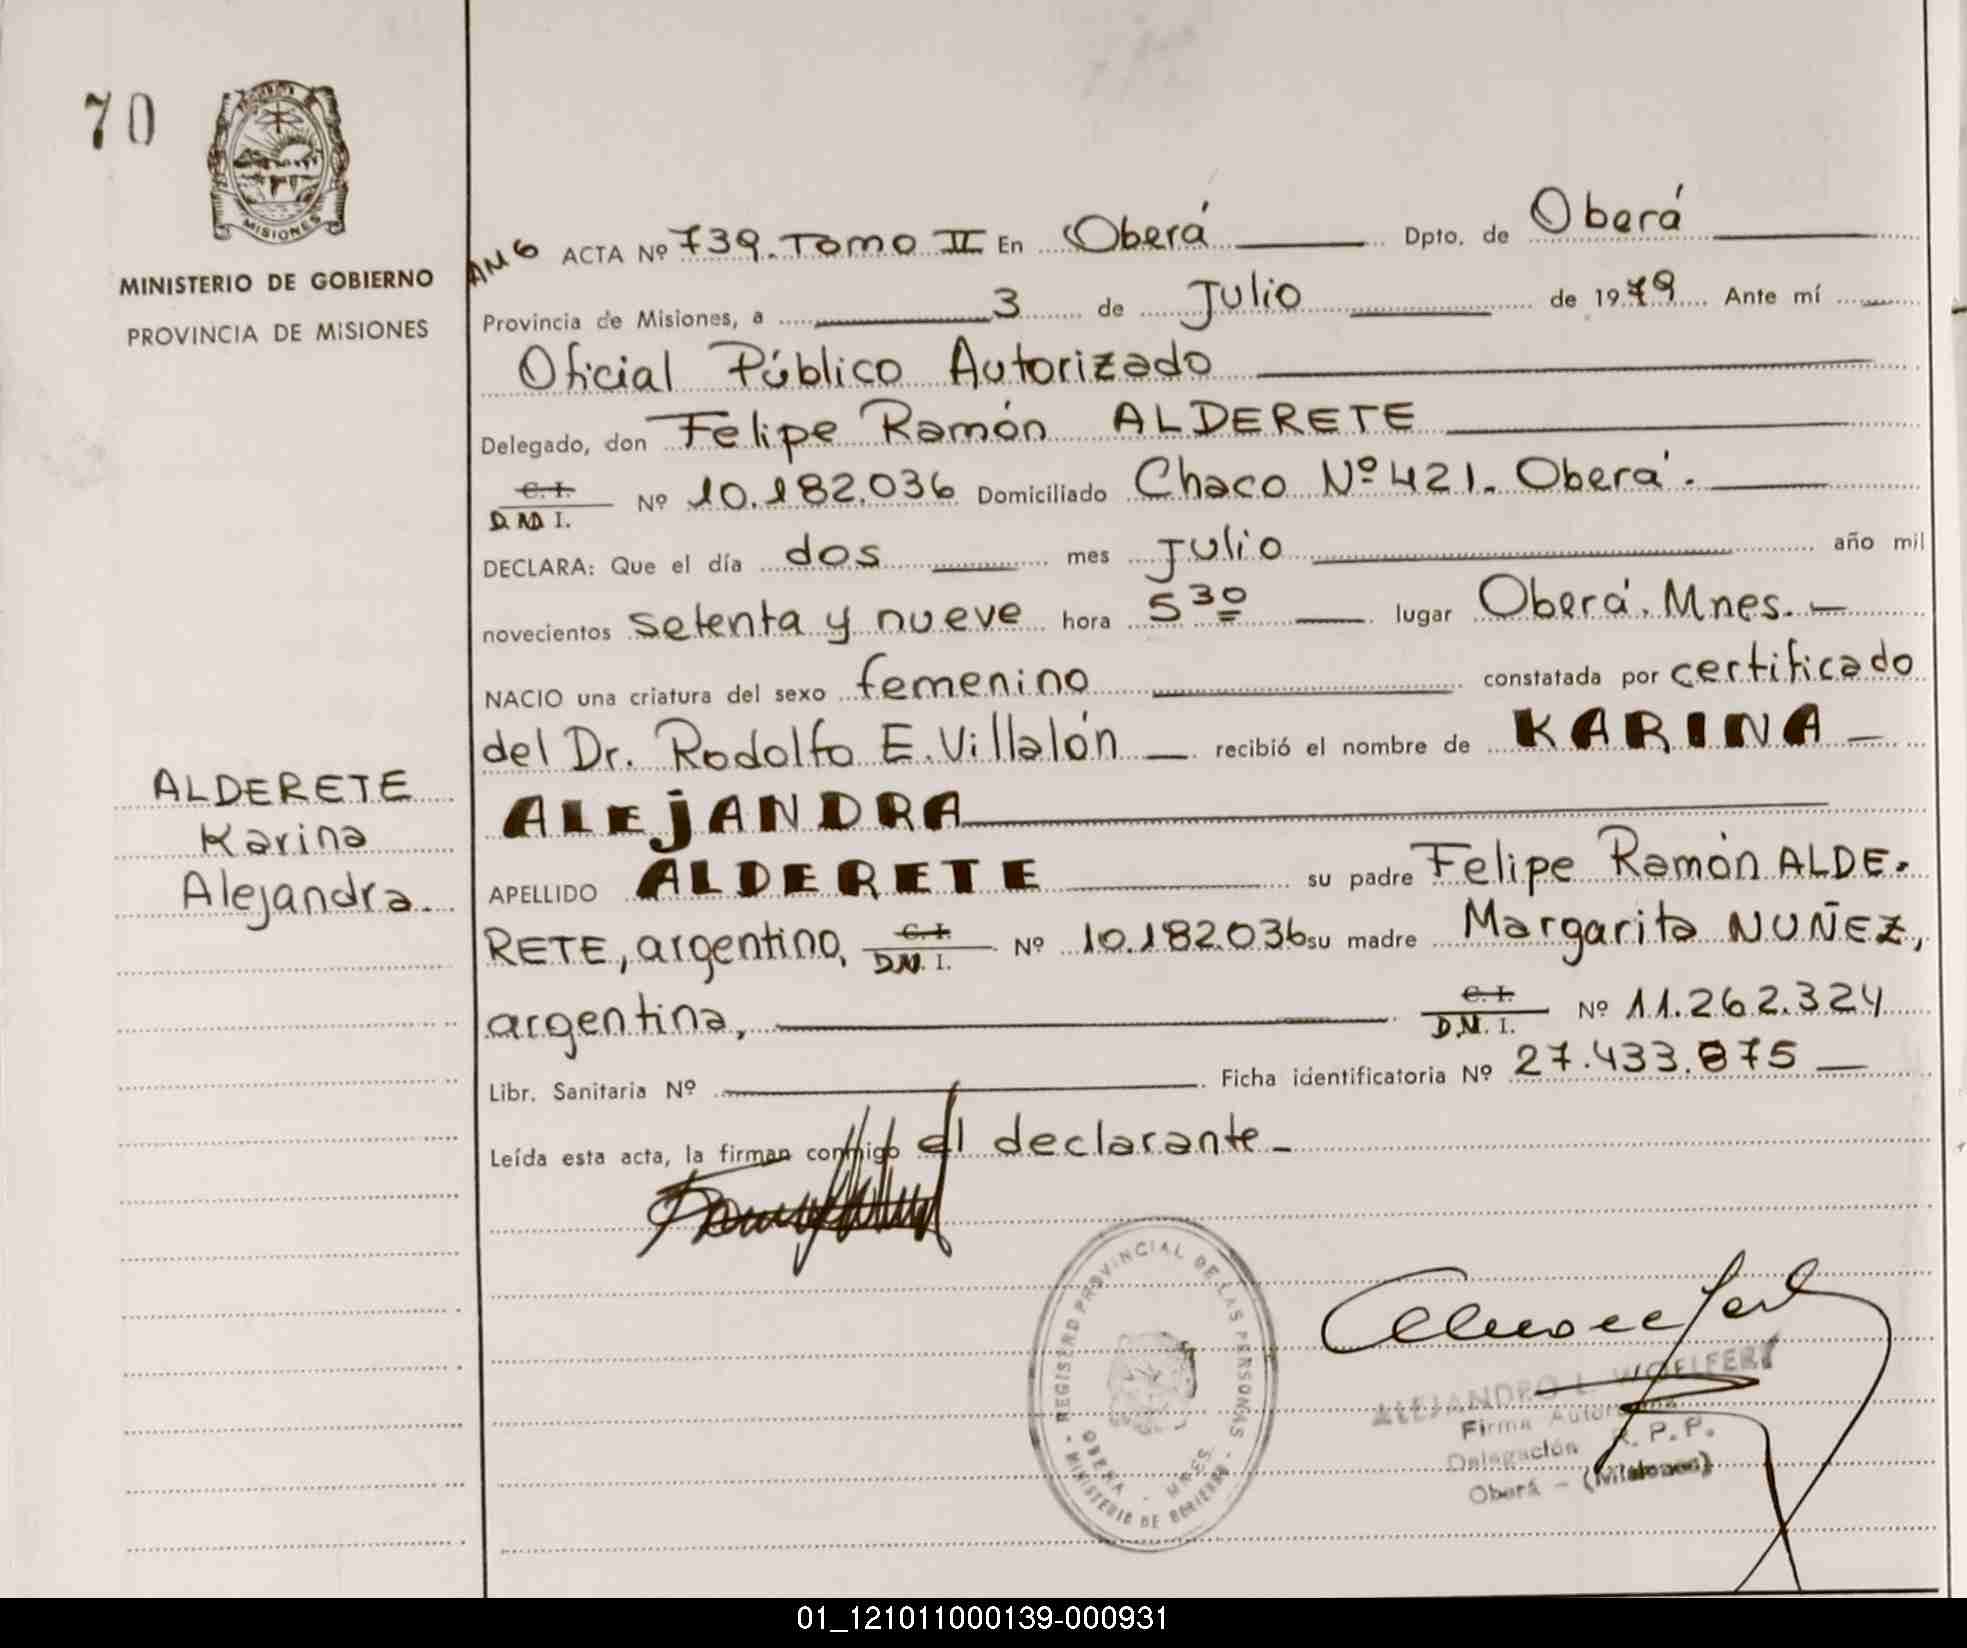 70
MISIONES
MINISTERIO DE GOBIERNO
PROVINCIA DE MISIONES
ALDERETE
Karina
Alejandra.
ACTA Nº 739. Tomo II En Oberá Dpto. de Oberá
Provincia de Misiones, a 3 de Julio de 1979 Ante mí
Oficial Público Autorizado
Delegado, don Felipe Ramón ALDERETE
C. I.
D.N.I. Nº 10.182.036 Domiciliado Chaco Nº 421. Oberá.
DECLARA: Que el día dos mes Julio año mil
novecientos setenta y nueve hora 5 30 lugar Oberá. Mnes. —
NACIO una criatura del sexo femenino constatada por certificado
del Dr. Rodolfo E. Villalón — recibió el nombre de KARINA —
ALEJANDRA
APELLIDO ALDERETE su padre Felipe Ramón ALDE-
RETE, argentino, C. I. D.N.I. Nº 10.182.036 su madre Margarita NUÑEZ,
argentina, C. I. D.N.I. Nº 11.262.324
Libr. Sanitaria Nº Ficha identificatoria Nº 27.433.875 —
Leída esta acta, la firman conmigo el declarante —
REGISTRO PROVINCIAL DE LAS PERSONAS
OBERA - MNES.
- MINISTERIO DE GOBIERNO -
ALEJANDRO L. WOELFERT
Firma Autorizada
Delegación R. P. P.
Oberá - (Misiones)
01_121011000139-000931